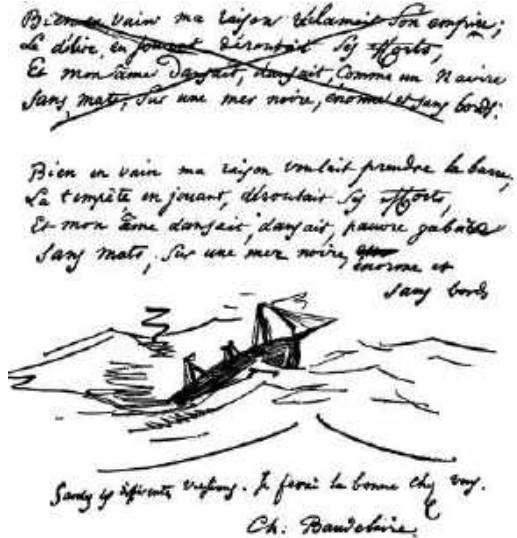 Bien en vain ma raison réclamait son empire;
Le délire, en jouant déroutait ses efforts,
Et mon âme dansait, dansait, comme un Navire
Sans mats, sur une mer noire, énorme et sans bords.
Bien en vain ma raison voulait prendre la barre,
La tempête en jouant, déroutait ses efforts,
Et mon âme dansait, dansait, pauvre gabare
Sans mats, sur une mer noire, énorme et
sans bords
Gardez ces différentes versions. Je ferai la bonne chez vous.
Ch. Baudelaire.